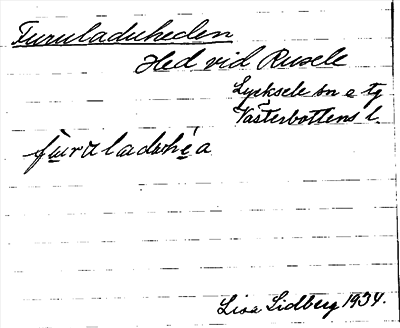 Furuladuheden
Hed vid Rusele
Lycksele sn o tg
Västerbottens l.
furuladuhéa
Lisa Lidberg 1934.